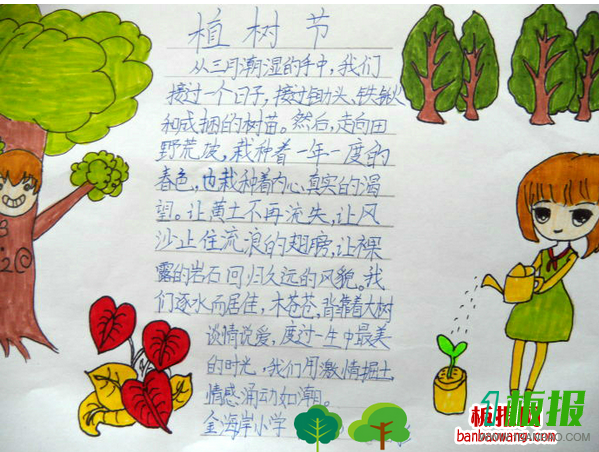 植树节
从三月潮湿的手中，我们
接过一个日子，接过锄头、铁锹
和成捆的树苗。然后，走向田
野荒坡，栽种着一年一度的
春色，也栽种着内心真实的渴
望。让黄土不再流失，让风
沙止住流浪的翅膀，让裸
露的岩石回归久远的风貌。我
们逐水而居住，木苍苍，背靠着大树
谈情说爱，度过一生中最美
的时光，我们用激情掘土，
情感涌动如潮。
金海岸小学
3
20
板报